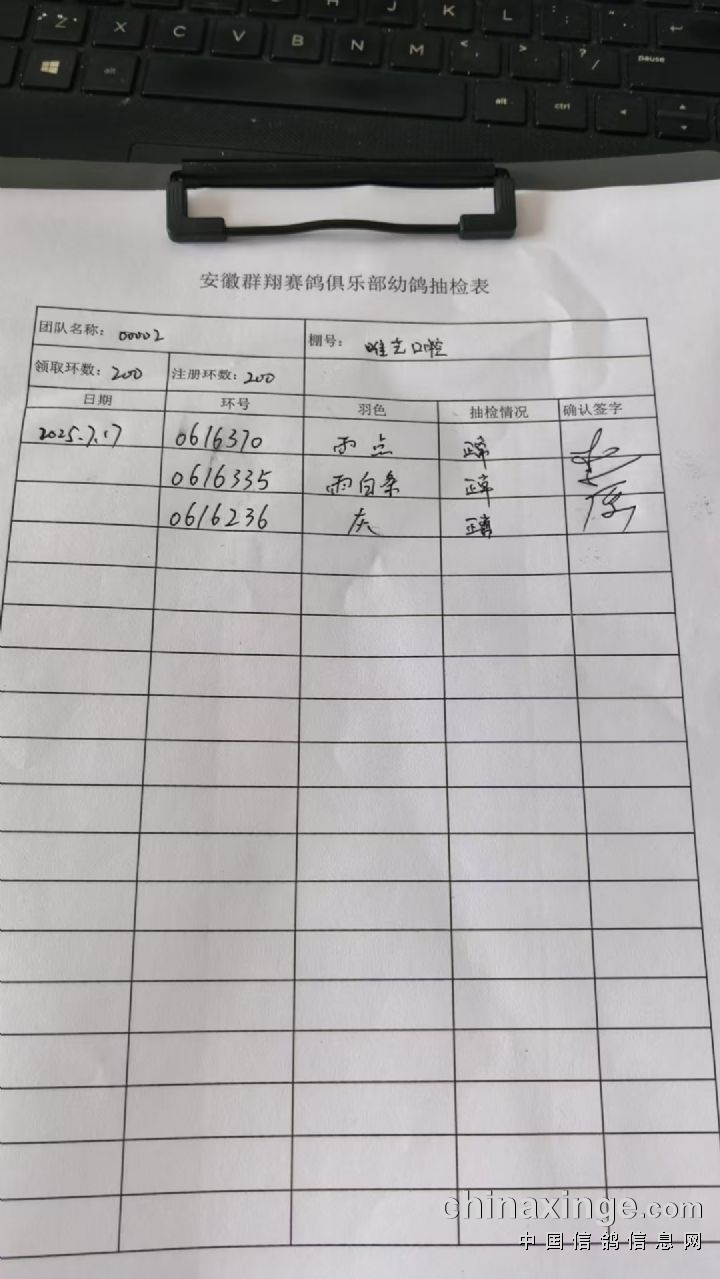 Z X C V B N M K L
alt alt ctrl pause
安徽群翔赛鸽俱乐部幼鸽抽检表
团队名称: 00002 棚号: 唯艺口腔
领取环数: 200 注册环数: 200
日期 环号 羽色 抽检情况 确认签字
2025.7.17 0616370 雨点 正常
0616335 雨白条 正常
0616236 灰 正常
chinaxinge.com
中国信鸽信息网